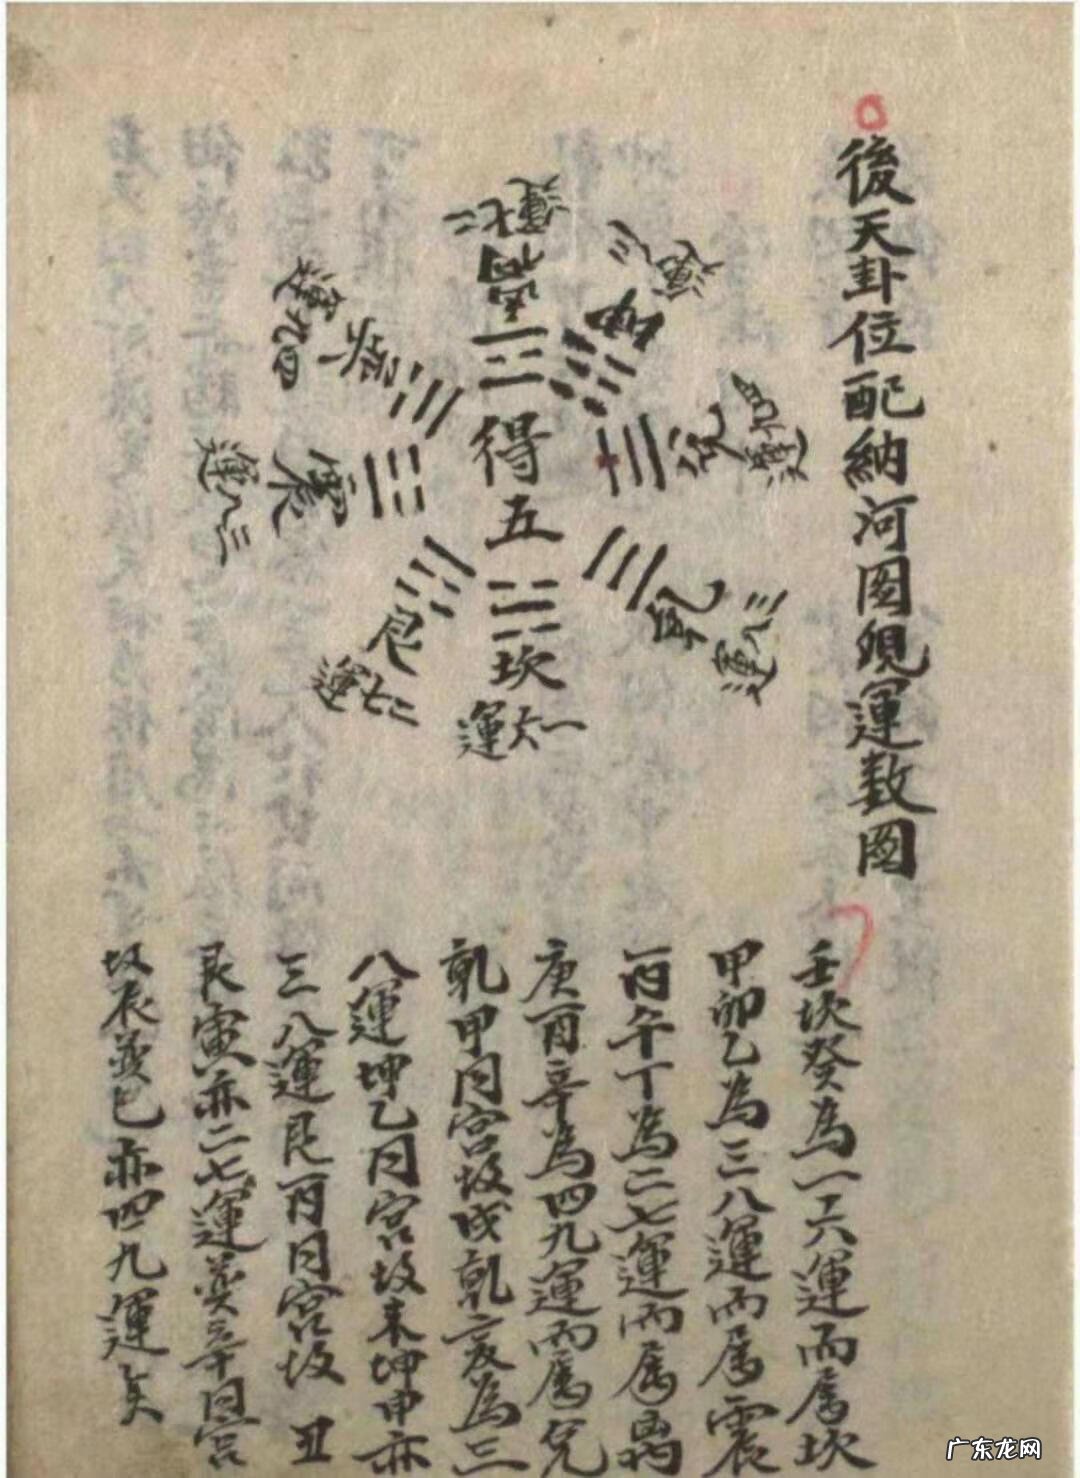 後天卦位配納河图現運数图
離
二七運
坤
三
運
兌
四九運
乹
三八運
得五
坎
一六運
艮
二七運
震
三八運
巽
四九運
壬坎癸為一六運而属坎
甲卯乙為三八運而属震
丙午丁為二七運而属离
庚酉辛為四九運而属兌
乹甲同宫故戍乹亥為三
八運坤乙同宫故未坤申亦
三八運艮丙同宫故丑
艮寅亦二七運巽辛同宫
故辰巽巳亦四九運矣
广东龙网